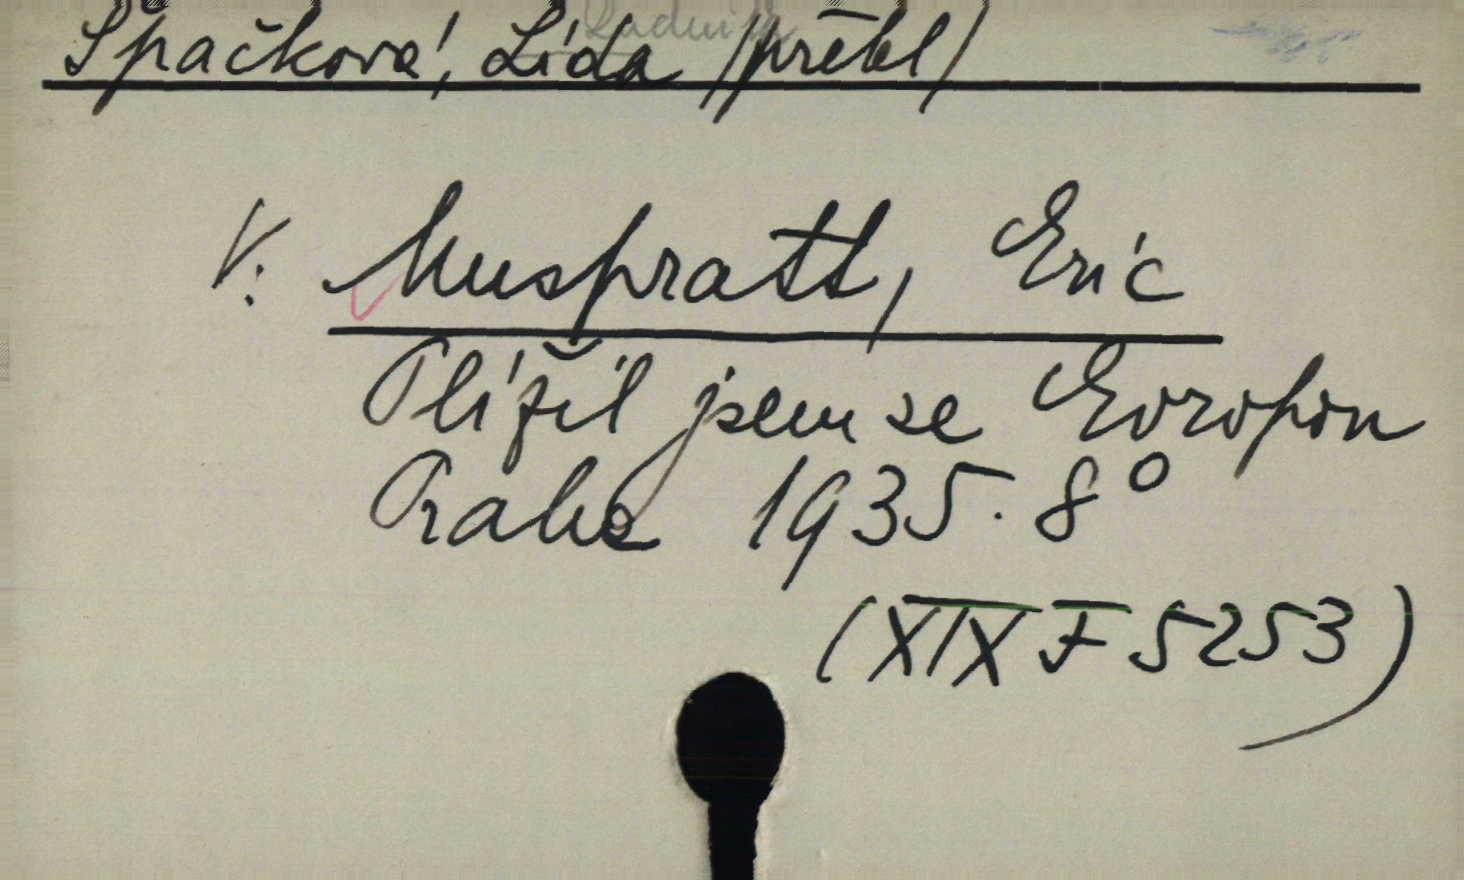 Ludmila
Špačková, Lída /přetl/
V. Muspratt, Eric
Plížil jsem se Evropou
Praha 1935. 8°
(XIX F 5253)